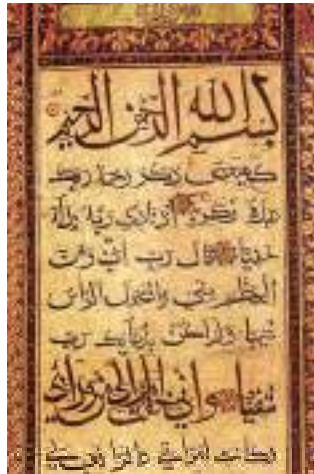 بسم الله الرحمن الرحيم
كهيعص ذكر رحمت ربك
عبده زكريا إذ نادى ربه نداء
خفيا قال رب إني وهن
العظم مني واشتعل الرأس
شيبا ولم أكن بدعائك رب
شقيا وإني خفت الموالي من ورائي
وكانت امرأتي عاقرا فهب لي